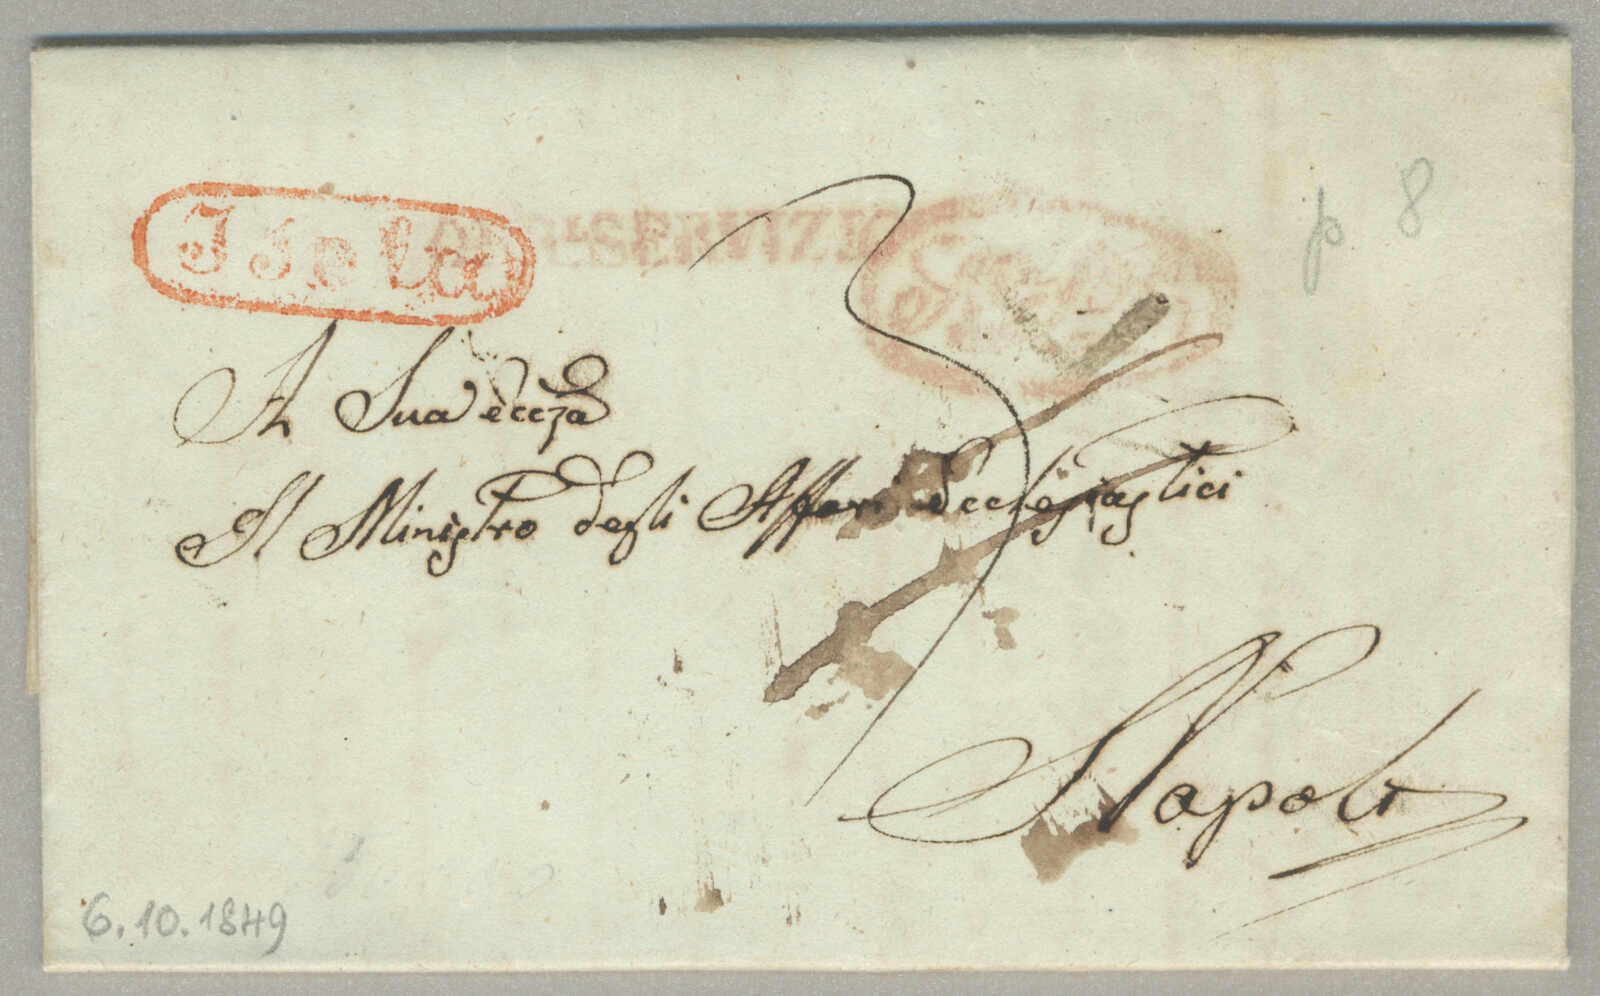 Isola
SERVIZIO
p 8
A Sua eccza
Il Ministro degli Affari Ecclesiastici
Napoli
6.10.1849